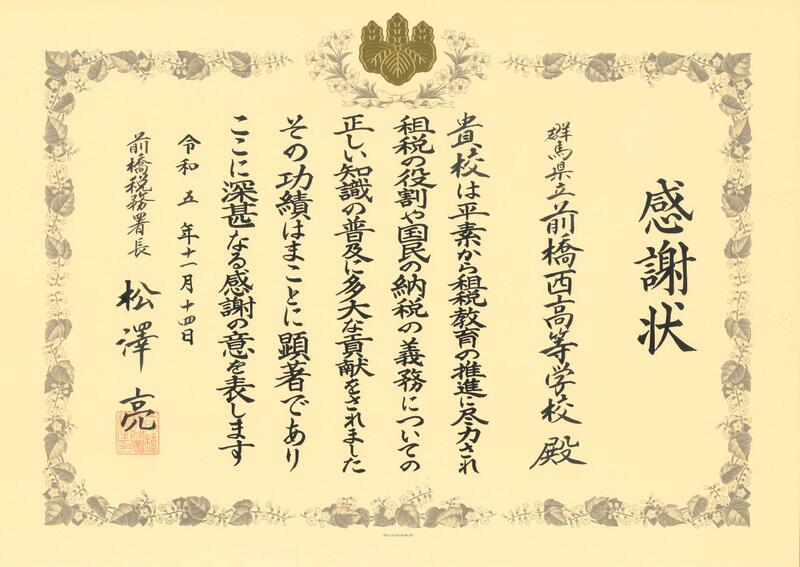 感謝状
群馬県立前橋西高等学校 殿
貴校は平素から租税教育の推進に尽力され
租税の役割や国民の納税の義務についての
正しい知識の普及に多大な貢献をされました
その功績はまことに顕著であり
ここに深甚なる感謝の意を表します
令和五年十一月十四日
前橋税務署長
松澤亮